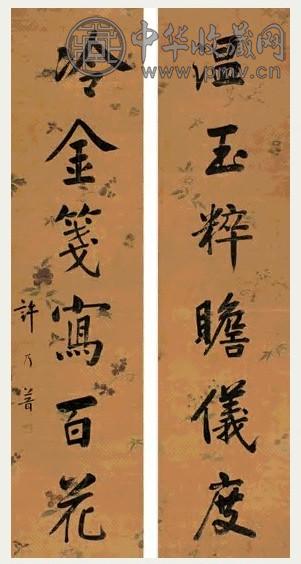 温玉粹瞻儀度
冷金箋寫百花
許乃普
中华收藏网
www.pmv.cn